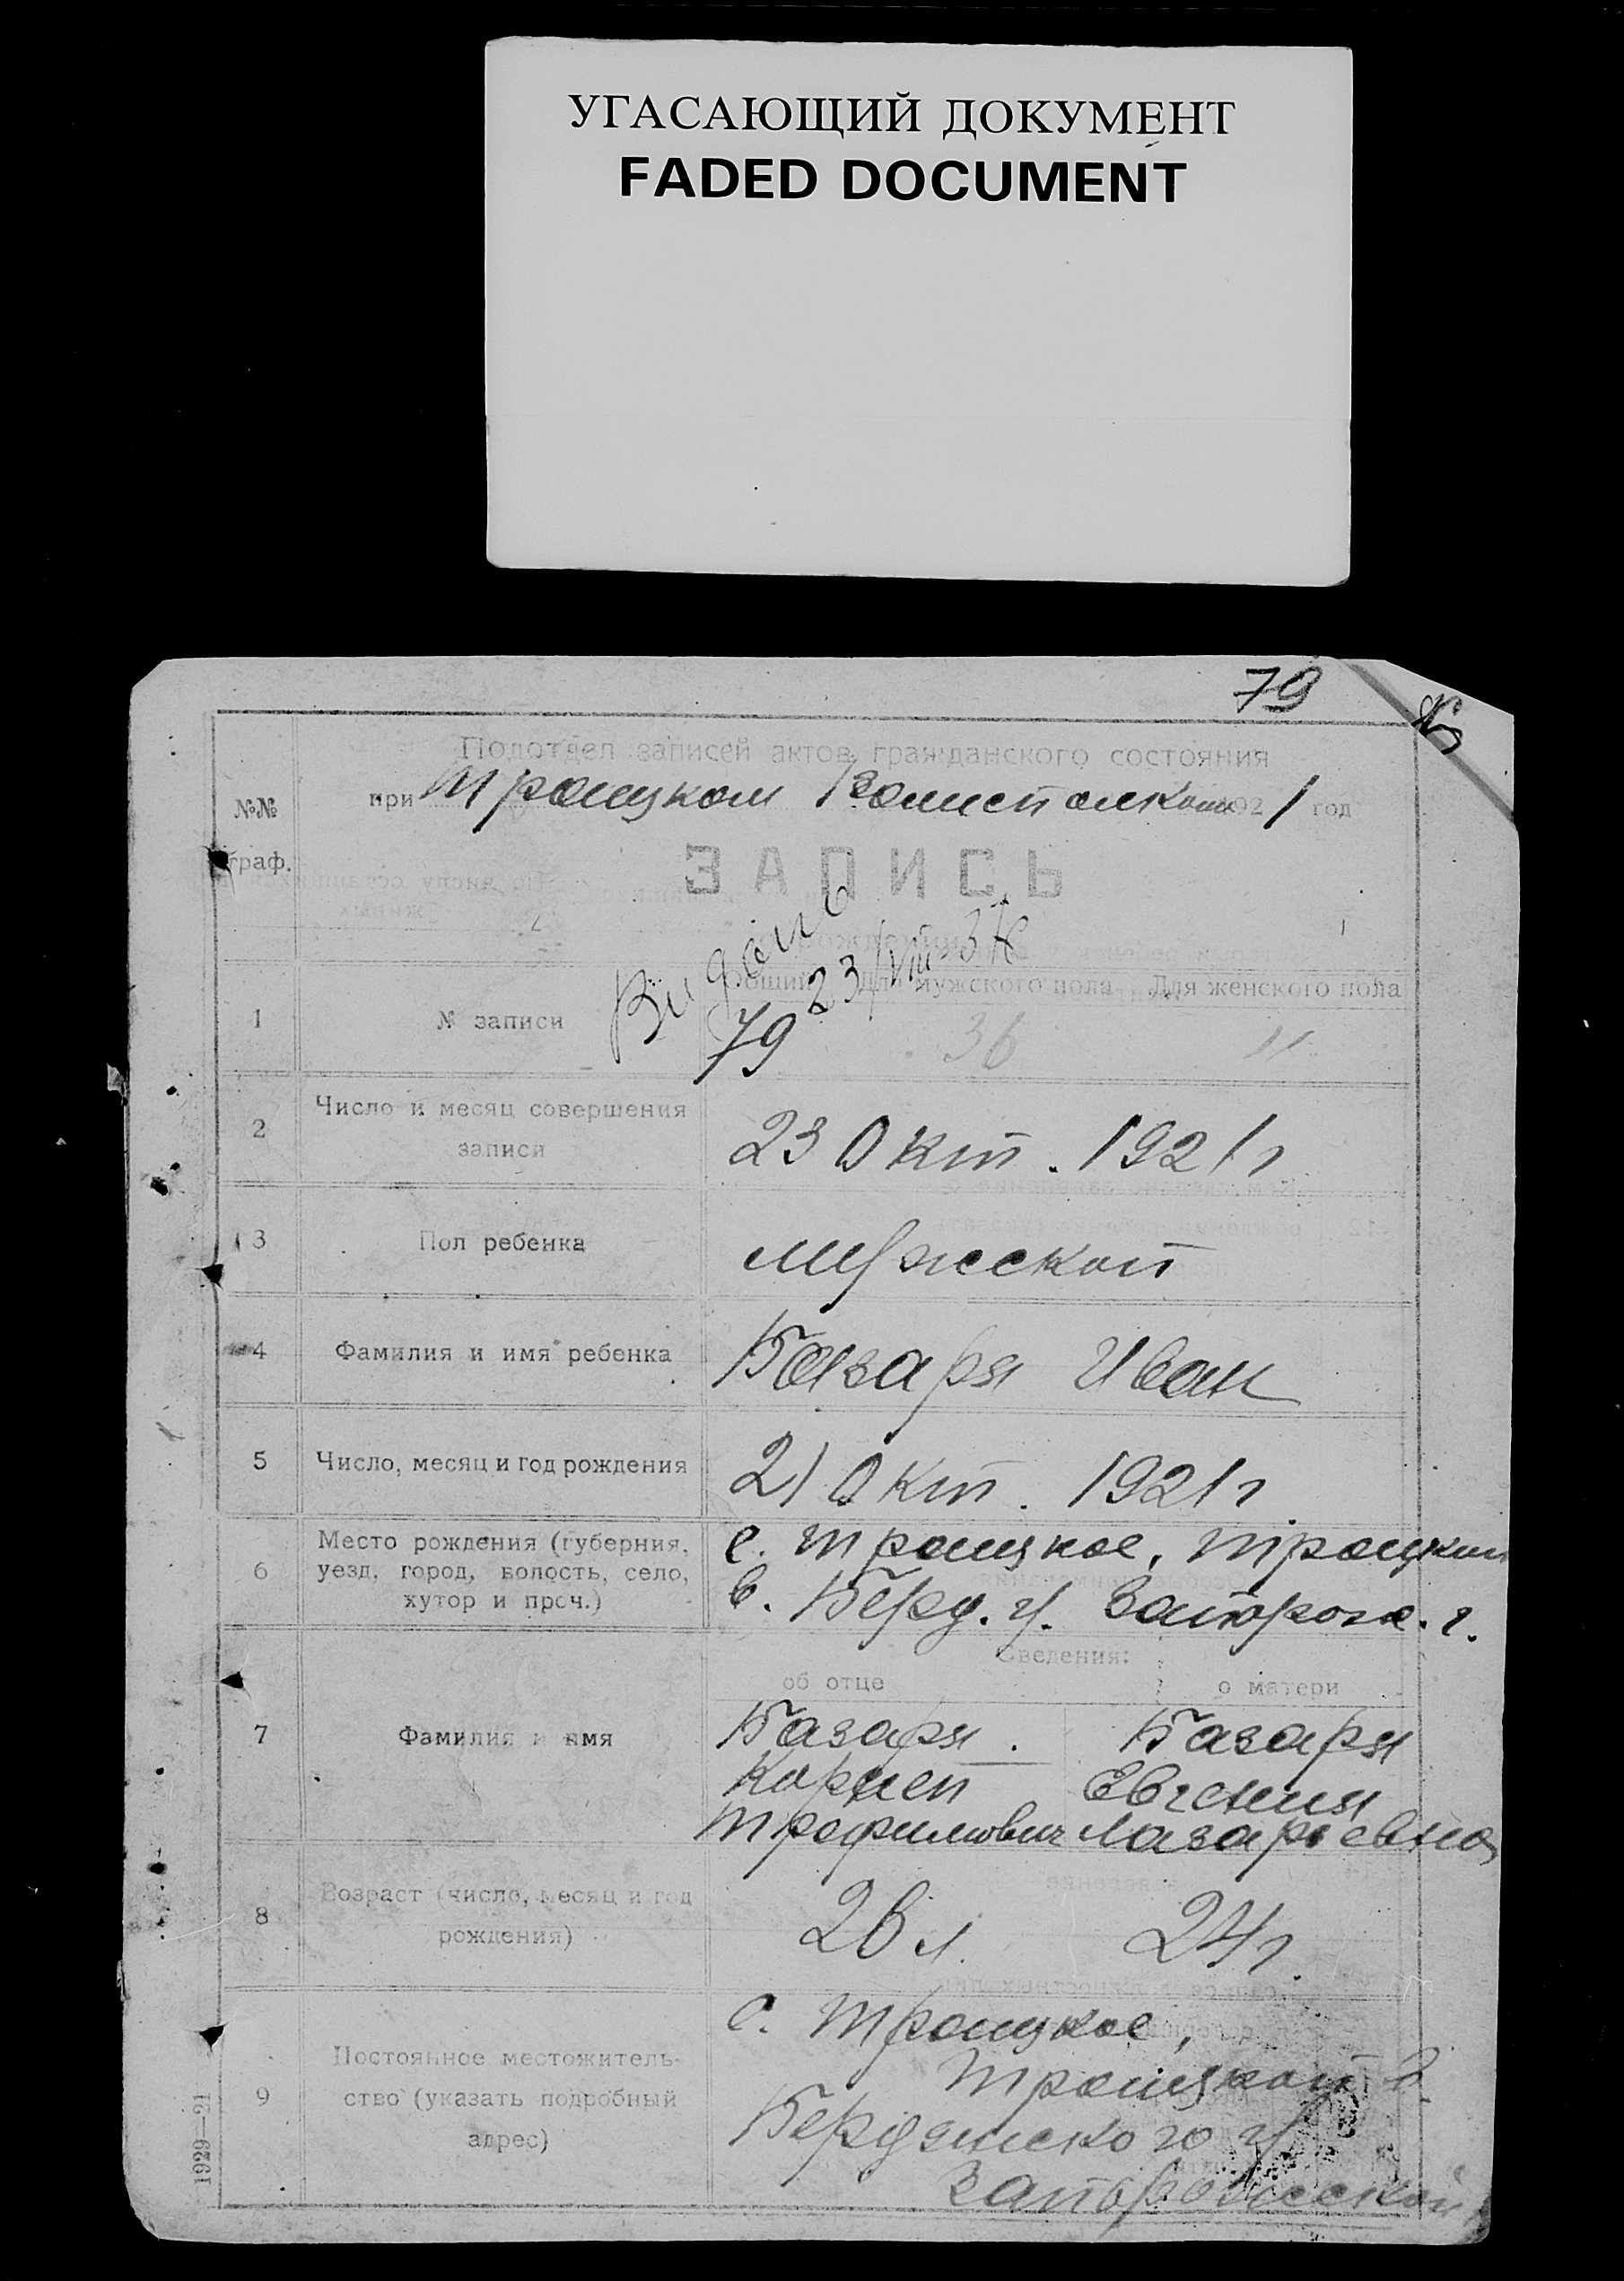 УГАСАЮЩИЙ ДОКУМЕНТ
FADED DOCUMENT
79
Подотдел записей актов гражданского состояния
№№ граф.
при Троицком Волисполкоме 1921 год
ЗАПИСЬ
Видано 23/VIII
Общий Для мужского пола Для женского пола
1 № записи 79 36 "
2 Число и месяц совершения
записи
23 Окт. 1921 г
3 Пол ребенка мужской
4 Фамилия и имя ребенка Базаря Иван
5 Число, месяц и год рождения 21 Окт. 1921 г
6 Место рождения (губерния,
уезд, город, волость, село,
хутор и проч.)
с. Троицкое, Троицкой
в. Берд. у. Запорож. г.
Сведения:
об отце о матери
7 Фамилия и имя
Базаря. Базаря
Корней Евгения
Трофимович Лазаревна
8 Возраст (число, месяц и год
рождения)
26 л. 24 г.
9 Постоянное местожитель-
ство (указать подробный
адрес)
с. Троицкое,
Троицкой в.
Бердянского у
Запорожской
1929—21